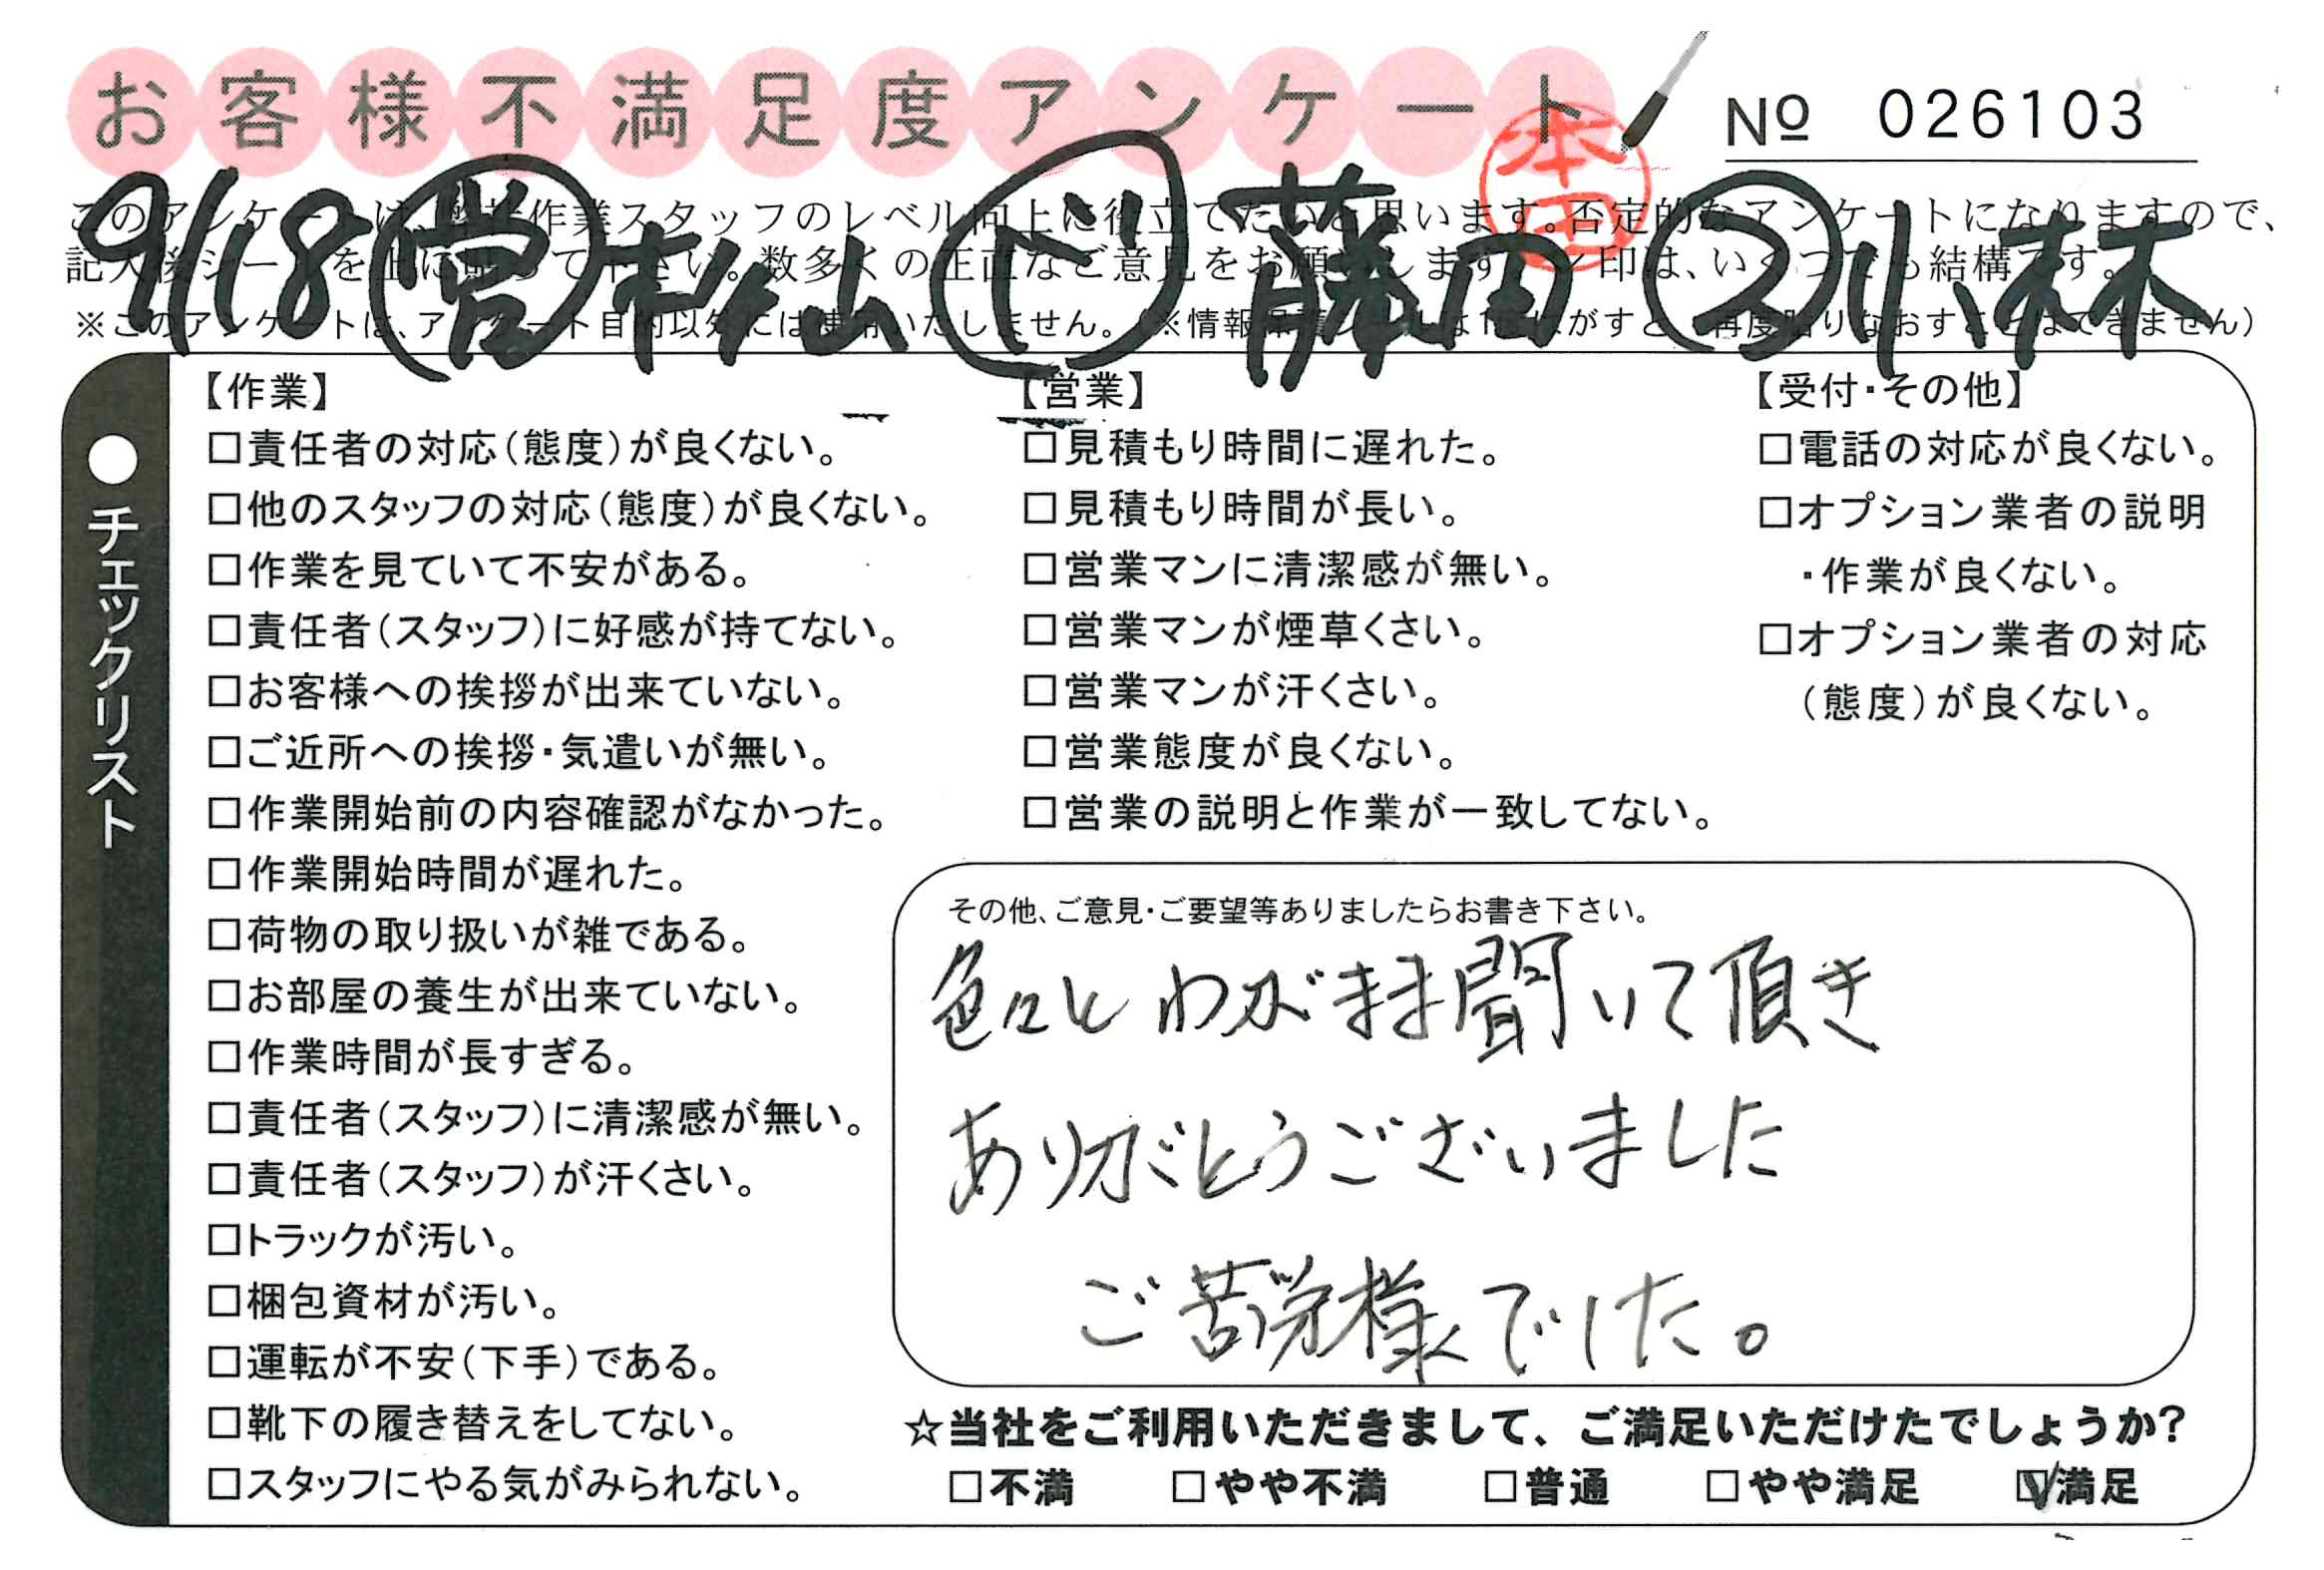 お客様不満足度アンケート
№ 026103
本田
9/18 営 松山 ① 藤田 ② 小林
このアンケートは、 作業スタッフのレベル向上に役立てたいと思います。否定的なアンケートになりますので、
記入後シールを上に貼って下さい。数多くの正直なご意見をお願いします。レ印は、いくつでも結構です。
※このアンケートは、アンケート目的以外には使用いたしません。(※情報保護シールは1度はがすと、再度貼りなおすことはできません)
●チェックリスト
【作業】
□責任者の対応(態度)が良くない。
□他のスタッフの対応(態度)が良くない。
□作業を見ていて不安がある。
□責任者(スタッフ)に好感が持てない。
□お客様への挨拶が出来ていない。
□ご近所への挨拶・気遣いが無い。
□作業開始前の内容確認がなかった。
□作業開始時間が遅れた。
□荷物の取り扱いが雑である。
□お部屋の養生が出来ていない。
□作業時間が長すぎる。
□責任者(スタッフ)に清潔感が無い。
□責任者(スタッフ)が汗くさい。
□トラックが汚い。
□梱包資材が汚い。
□運転が不安(下手)である。
□靴下の履き替えをしてない。
□スタッフにやる気がみられない。
【営業】
□見積もり時間に遅れた。
□見積もり時間が長い。
□営業マンに清潔感が無い。
□営業マンが煙草くさい。
□営業マンが汗くさい。
□営業態度が良くない。
□営業の説明と作業が一致してない。
【受付・その他】
□電話の対応が良くない。
□オプション業者の説明
・作業が良くない。
□オプション業者の対応
(態度)が良くない。
その他、ご意見・ご要望等ありましたらお書き下さい。
色々とわがまま聞いて頂き
ありがとうございました
ご苦労様でした。
☆当社をご利用いただきまして、ご満足いただけたでしょうか?
□不満 □やや不満 □普通 □やや満足 ☑満足